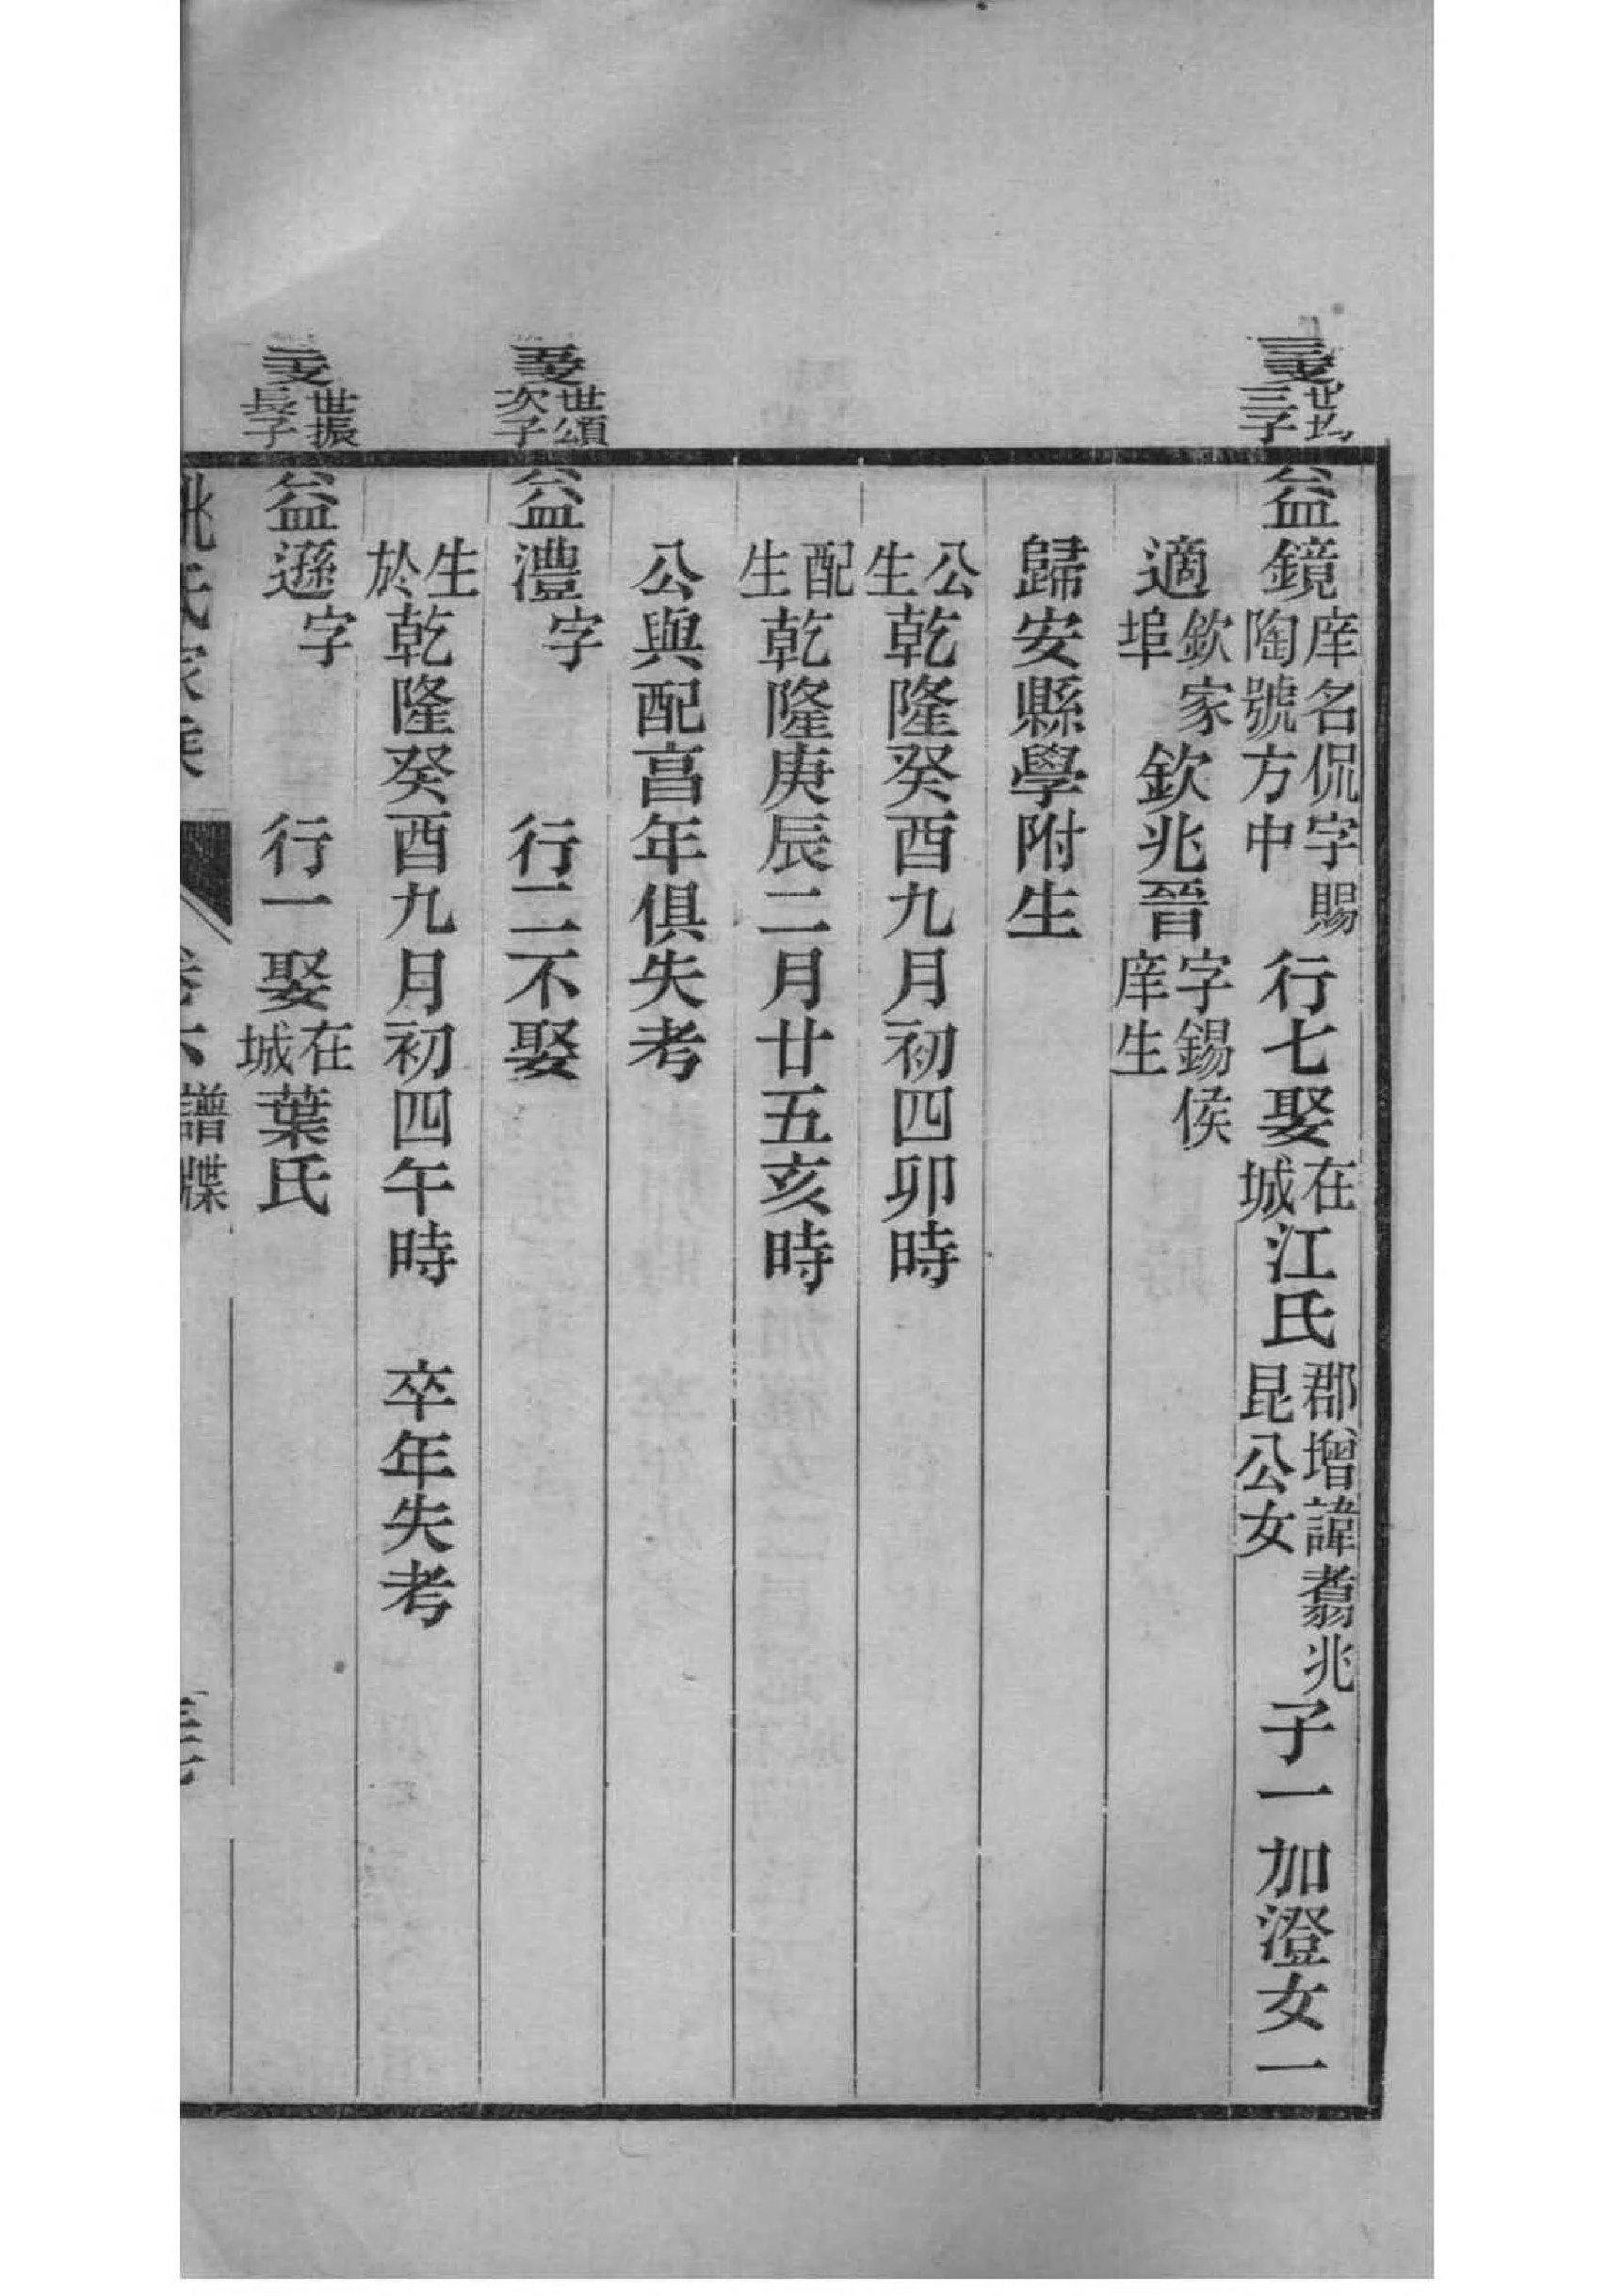 世均三子
益鏡庠名侃字賜陶號方中行七娶在城江氏郡增諱翥兆昆公女子一加澄女一
適欽家埠欽兆晉字錫侯庠生
歸安縣學附生
公生乾隆癸酉九月初四卯時
配生乾隆庚辰二月廿五亥時
公與配亯年俱失考
世頌次子
益澧字行二不娶
生於乾隆癸酉九月初四午時 卒年失考
世振長子
益遜字行一娶在城葉氏
姚氏家乘 卷六 譜牒